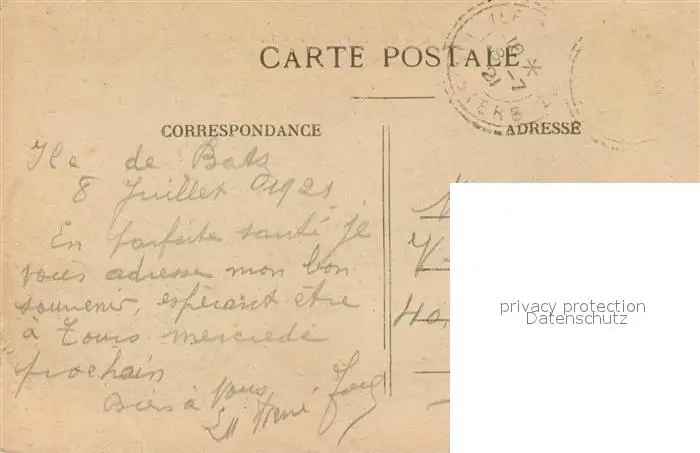 CARTE POSTALE
CORRESPONDANCE
ADRESSE
Ile de Bats
8 Juillet 1921
En parfaite santé je
vous adresse mon bon
souvenir, espérant être
à Tours mercredi
prochain
Bien à vous
René
40,
privacy protection
Datenschutz